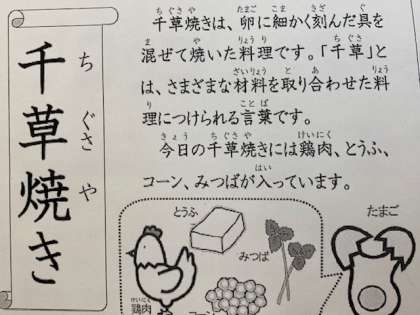 千草焼き
ちぐさや
千草焼きは、卵に細かく刻んだ具を
混ぜて焼いた料理です。「千草」と
は、さまざまな材料を取り合わせた料
理につけられる言葉です。
今日の千草焼きには鶏肉、とうふ、
コーン、みつばが入っています。
とうふ
みつば
たまご
鶏肉
けいにく
コーン